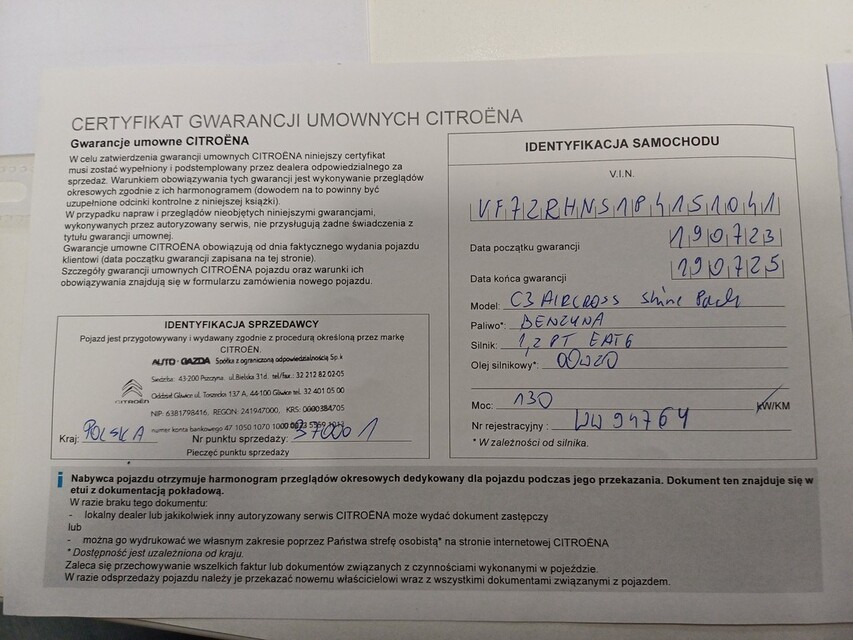 CERTYFIKAT GWARANCJI UMOWNYCH CITROËNA
Gwarancje umowne CITROËNA
W celu zatwierdzenia gwarancji umownych CITROËNA niniejszy certyfikat
musi zostać wypełniony i podstemplowany przez dealera odpowiedzialnego za
sprzedaż. Warunkiem obowiązywania tych gwarancji jest wykonywanie przeglądów
okresowych zgodnie z ich harmonogramem (dowodem na to powinny być
uzupełnione odcinki kontrolne z niniejszej książki).
W przypadku napraw i przeglądów nieobjętych niniejszymi gwarancjami,
wykonywanych przez autoryzowany serwis, nie przysługują żadne świadczenia z
tytułu gwarancji umownej.
Gwarancje umowne CITROËNA obowiązują od dnia faktycznego wydania pojazdu
klientowi (data początku gwarancji zapisana na tej stronie).
Szczegóły gwarancji umownych CITROËNA pojazdu oraz warunki ich
obowiązywania znajdują się w formularzu zamówienia nowego pojazdu.
IDENTYFIKACJA SPRZEDAWCY
Pojazd jest przygotowywany i wydawany zgodnie z procedurą określoną przez markę
CITROËN.
AUTO-GAZDA Spółka z ograniczoną odpowiedzialnością Sp. k
Siedziba: 43-200 Pszczyna ul.Bielska 31d tel./fax.: 32 212 82 02-05
Oddział Gliwice ul. Toszecka 137 A, 44-100 Gliwice tel. 32 401 05 00
NIP: 6381798416, REGON: 241947000, KRS: 0000384705
numer konta bankowego 47 1050 1070 1000
CITROËN
Kraj: POLSKA Nr punktu sprzedaży: 370001
Pieczęć punktu sprzedaży
IDENTYFIKACJA SAMOCHODU
V.I.N.
VF72RHNS184151041
Data początku gwarancji 190723
Data końca gwarancji 190725
Model: C3 AIRCROSS Shine Pack
Paliwo*: BENZYNA
Silnik: 1,2 PT EAT6
Olej silnikowy*: 00W20
Moc: 130 kW/KM
Nr rejestracyjny: WW 94764
* W zależności od silnika.
i Nabywca pojazdu otrzymuje harmonogram przeglądów okresowych dedykowany dla pojazdu podczas jego przekazania. Dokument ten znajduje się w
etui z dokumentacją pokładową.
W razie braku tego dokumentu:
- lokalny dealer lub jakikolwiek inny autoryzowany serwis CITROËNA może wydać dokument zastępczy
lub
- można go wydrukować we własnym zakresie poprzez Państwa strefę osobistą* na stronie internetowej CITROËNA
* Dostępność jest uzależniona od kraju.
Zaleca się przechowywanie wszelkich faktur lub dokumentów związanych z czynnościami wykonanymi w pojeździe.
W razie odsprzedaży pojazdu należy je przekazać nowemu właścicielowi wraz z wszystkimi dokumentami związanymi z pojazdem.